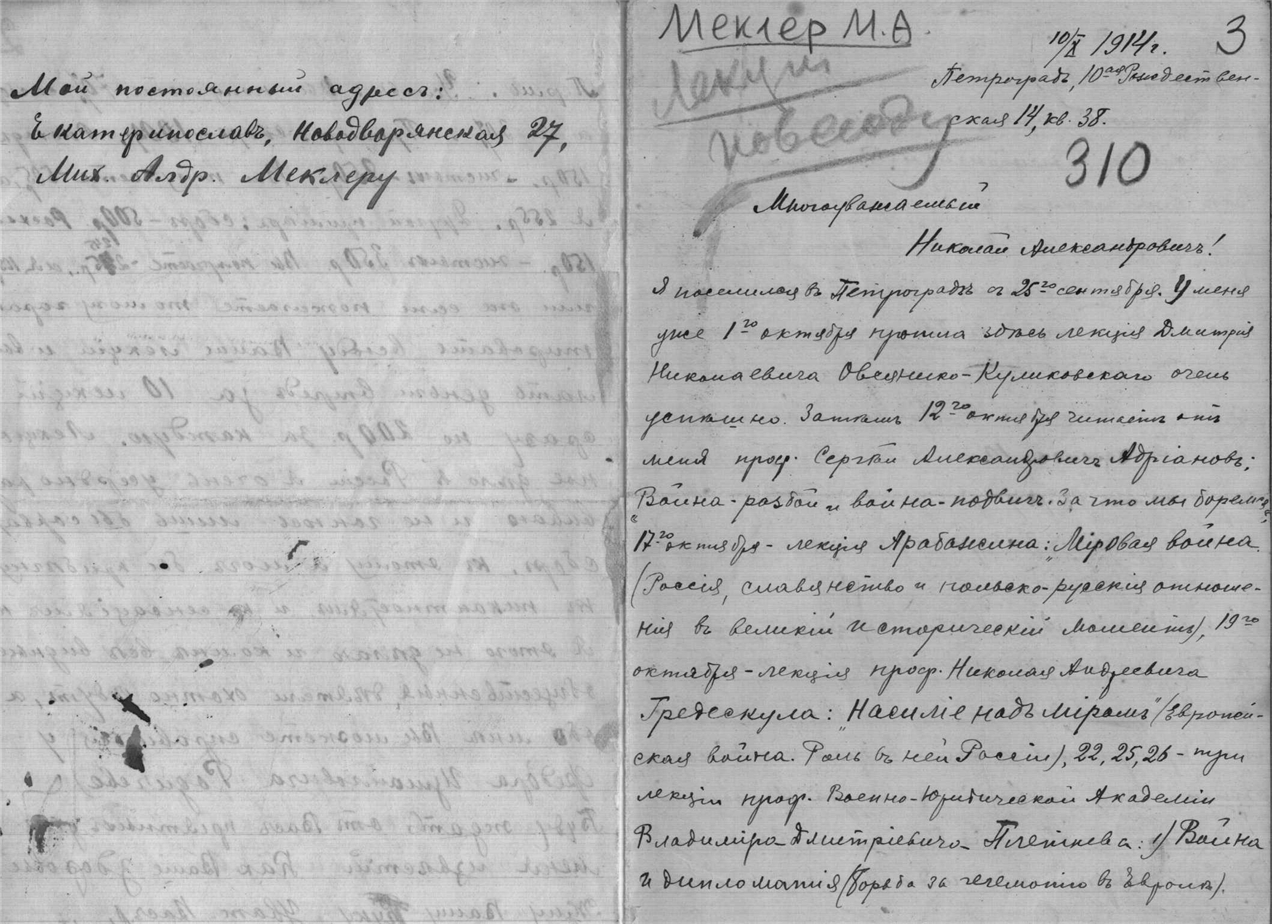 Мой постоянный адресъ:
Екатеринославъ, Новодворянская 27,
Мих. Алдр. Меклеру
Меклер М.А
3
10/X 1914 г.
Лекции
Петроградъ, 10ая Рождествен-
ская 14, кв. 38.
310
Многоуважаемый
Николай Александровичъ!
Я поселился въ Петроградѣ съ 25го сентября. У меня
уже 1го октября прошла здѣсь лекція Дмитрія
Николаевича Овсянико-Куликовскаго очень
успѣшно. Затѣмъ 12го октября читаетъ отъ
меня проф. Сергѣй Александровичъ Адріановъ:
"Война-разбой и война-подвигъ. За что мы боремся",
17го октября - лекція Арабажина: "Міровая война
(Россія, славянство и польско-русскія отноше-
нія въ великій историческій моментъ), 19го
октября - лекція проф. Николая Андреевича
Гредескула: "Насиліе надъ міромъ" (Европей-
ская война. Роль въ ней Россіи), 22, 25, 26 - три
лекціи проф. Военно-Юридической Академіи
Владиміра Дмитріевича Плетнева: 1) Война
и дипломатія (Борьба за гегемонію въ Европѣ).